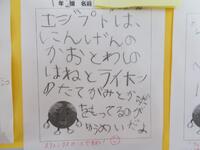 年 組 名前
エジプトは、
にんげんの
かおとわしの
はねとライオン
のたてがみとか
をもってるのが
ゆうめいだよ